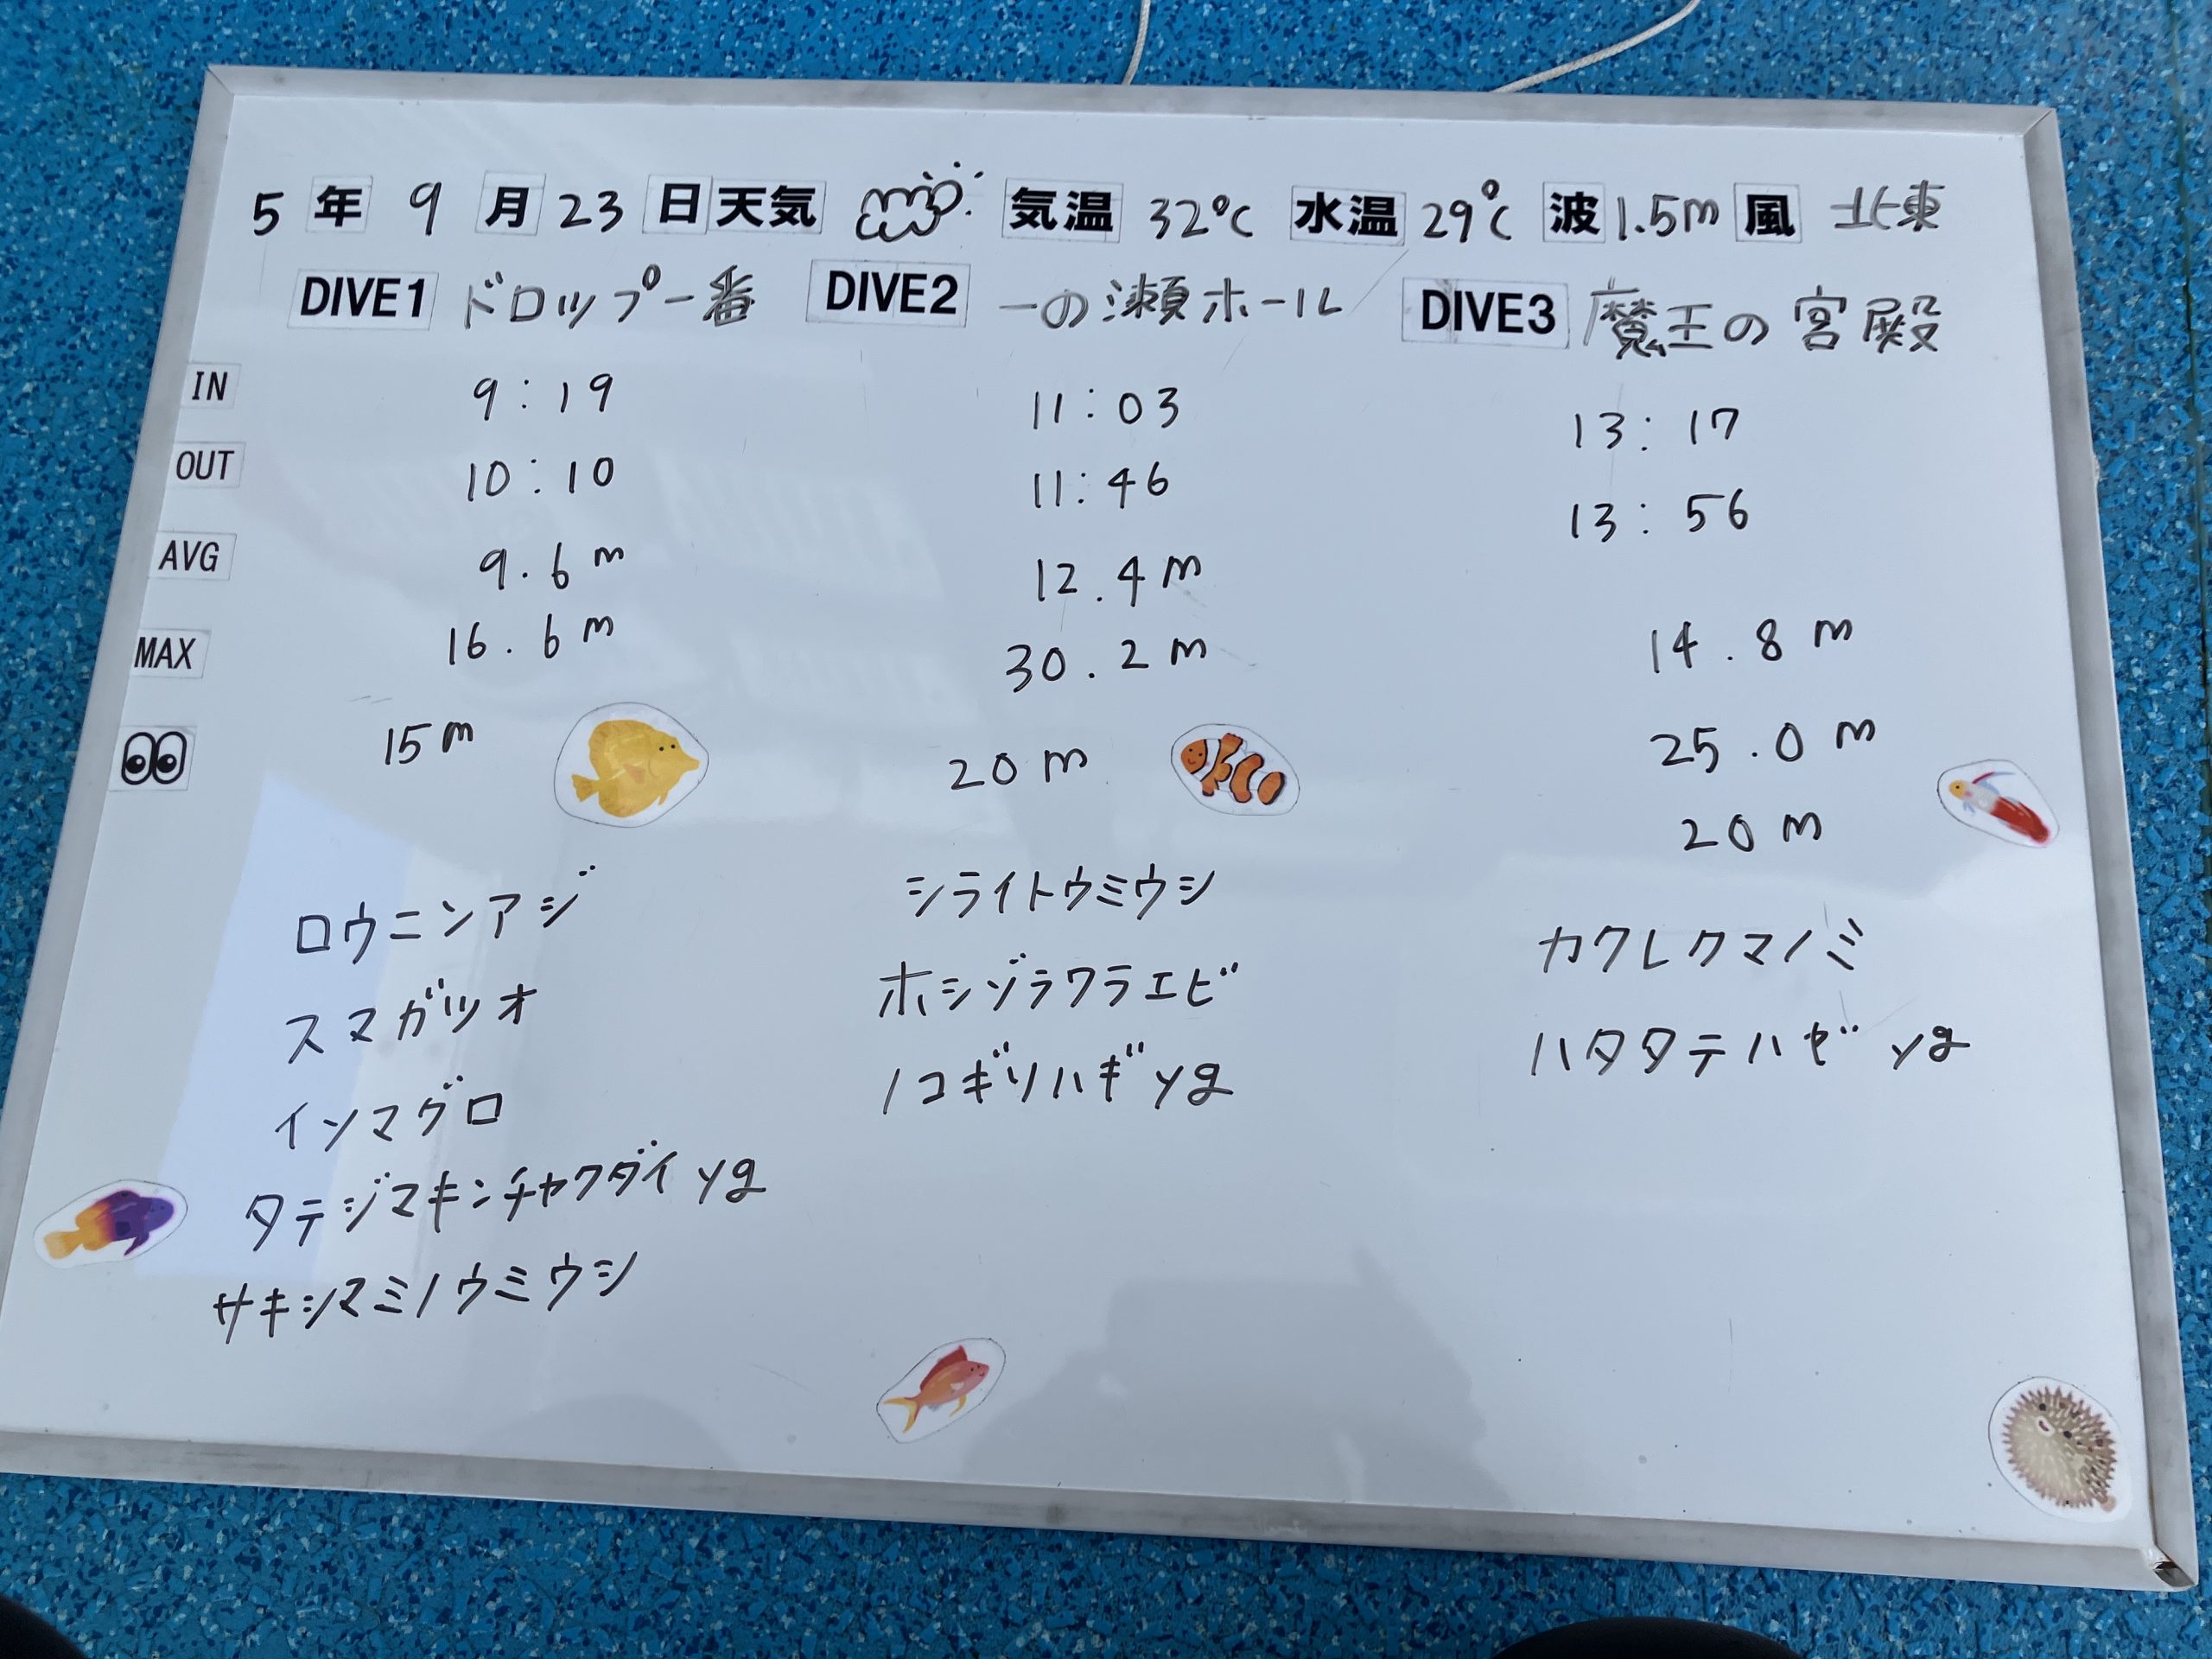 5 年 9 月 23 日 天気 気温 32℃ 水温 29℃ 波 1.5m 風 北東
DIVE1 ドロップ一番 DIVE2 一の瀬ホール DIVE3 魔王の宮殿
IN 9:19 11:03 13:17
OUT 10:10 11:46 13:56
AVG 9.6m 12.4m 14.8m
MAX 16.6m 30.2m 25.0m
15m 20m 20m
ロウニンアジ シライトウミウシ カクレクマノミ
スマガツオ ホシゾラワラエビ ハタタテハゼ yg
イソマグロ ノコギリハギ yg
タテジマキンチャクダイ yg
サキシマミノウミウシ